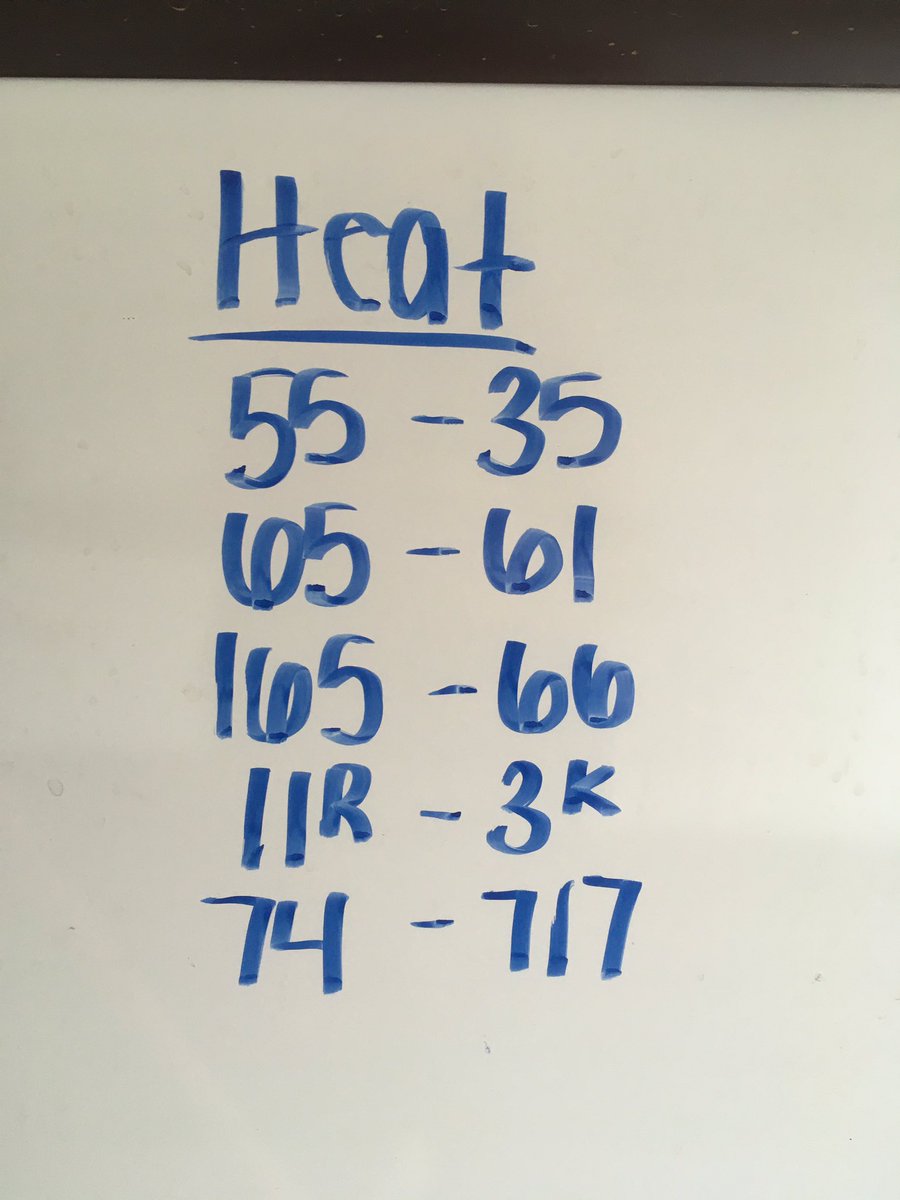 Heat
55 - 35
65 - 61
165 - 66
11R - 3K
74 - 717